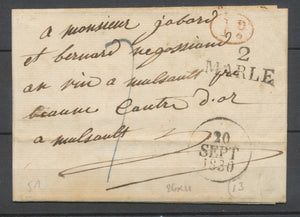 a monsieur jobard
et bernard negossiand
an vin a mulsault pre
beaune Cautre d'or
a mulsault
7
2
MARLE
20
SEPT
1830
13